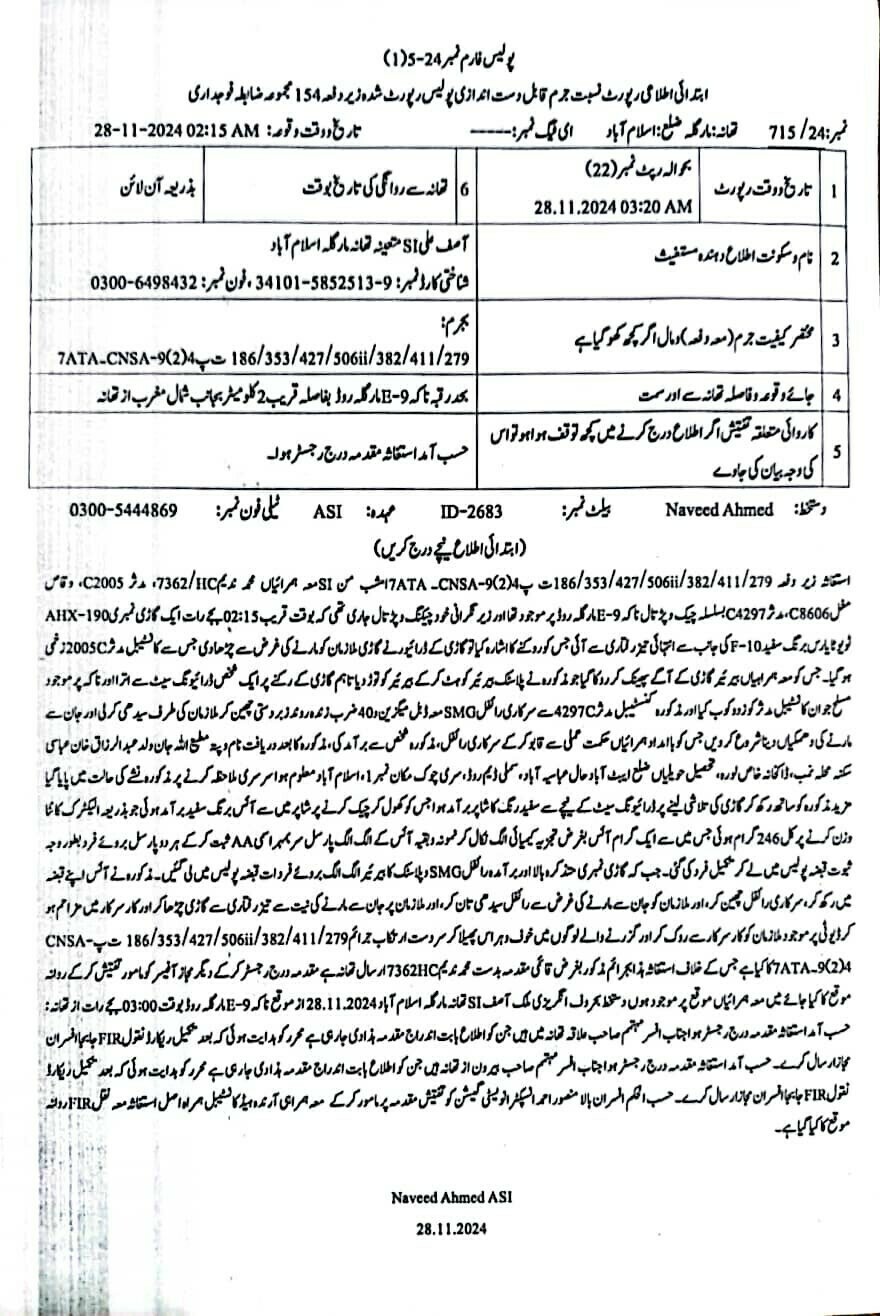 پولیس فارم نمبر 24-5(1)
ابتدائی اطلاعی رپورٹ نسبت جرم قابل دست اندازی پولیس رپورٹ شدہ زیر دفعہ 154 مجموعہ ضابطہ فوجداری
نمبر: 715/24 تھانہ: مارگلہ ضلع: اسلام آباد ای ٹیگ نمبر: ----- تاریخ و وقت وقوعہ: 28-11-2024 02:15 AM
1 تاریخ و وقت رپورٹ بحوالہ رپٹ نمبر (22) 28.11.2024 03:20 AM 6 تھانہ سے روانگی کی تاریخ و وقت بذریعہ آن لائن
2 نام و سکونت اطلاع دہندہ مستغیث آصف علی SI متعینہ تھانہ مارگلہ اسلام آباد
شناختی کارڈ نمبر: 34101-5852513-9 ، فون نمبر: 0300-6498432
3 مختصر کیفیت جرم (معہ دفعہ) و مال اگر کچھ کھو گیا ہے بجرم:
186/353/427/506ii/382/411/279 ت پ 7ATA-CNSA-9(2)4
4 جائے وقوعہ و فاصلہ تھانہ سے اور سمت بحد رقبہ ناکہ E-9 مارگلہ روڈ بفاصلہ قریب 2 کلو میٹر بجانب شمال مغرب از تھانہ
5 کاروائی متعلقہ تفتیش اگر اطلاع درج کرنے میں کچھ توقف ہوا ہو تو اس کی وجہ بیان کی جاوے حسب آمد استغاثہ مقدمہ درج رجسٹر ہوا۔
دستخط: Naveed Ahmed بیلٹ نمبر: ID-2683 عہدہ: ASI ٹیلی فون نمبر: 0300-5444869
(ابتدائی اطلاع نیچے درج کریں)
استغاثہ زیر دفعہ 186/353/427/506ii/382/411/279 ت پ 7ATA -CNSA-9(2)4 امشب من SI معہ ہمرائیاں محمد ندیم 7362/HC، مدثر C2005، وقاص
مغل C8606، مدثر C4297 بسلسلہ چیک پڑتال ناکہ E-9 مارگلہ روڈ پر موجود تھا اور زیر نگرانی خود چیکنگ و پڑتال جاری تھی کہ بوقت قریب 02:15 بجے رات ایک گاڑی نمبری AHX-190
ٹویوٹا یارس برنگ سفید F-10 کی جانب سے انتہائی تیز رفتاری سے آئی جس کو رکنے کا اشارہ کیا تو گاڑی کے ڈرائیور نے گاڑی ملازمان کو مارنے کی غرض سے چڑھا دی جس سے کانسٹیبل مدثر 2005C زخمی
ہو گیا۔ جس کو معہ ہمراہیاں بیرئیر گاڑی کے آگے پھینک کر روکا گیا جو مذکورہ نے پلاسٹک بیرئیر کو ہٹ کر کے بیرئیر کو توڑ دیا تاہم گاڑی کے رکنے پر ایک شخص ڈرائیونگ سیٹ سے اترا اور ناکہ پر موجود
مسلح جوان کانسٹیبل مدثر کو زدوکوب کیا اور مذکورہ کنسٹیبل مدثر 4297C سے سرکاری رائفل SMG معہ ڈبل میگزین و 40 ضرب زندہ روند زبردستی چھین کر ملازمان کی طرف سیدھی کر لی اور جان سے
مارنے کی دھمکیاں دینا شروع کر دیں جس کو با امداد ہمرائیاں حکمت عملی سے قابو کر کے سرکاری رائفل مذکورہ شخص سے برآمد کی، مذکورہ کا بعد دریافت نام و پتہ مطیع اللہ جان ولد عبدالرزاق خان عباسی
سکنہ محلہ نمب، ڈاکخانہ خاص لورہ، تحصیل حویلیاں ضلع ایبٹ آباد حال عباسیہ آباد، سملی ڈیم روڈ، سری چوک مکان نمبر 1، اسلام آباد معلوم ہوا سرسری ملاحظہ کرنے پر مذکورہ نشے کی حالت میں پایا گیا
مزید مذکورہ کو ساتھ رکھ کر گاڑی کی تلاشی لینے پر ڈرائیونگ سیٹ کے نیچے سے سفید رنگ کا شاپر برآمد ہوا جس کو کھول کر چیک کرنے پر شاپر میں سے آئس برنگ سفید برآمد ہوئی جو بذریعہ الیکٹرک کانٹا
وزن کرنے پر کل 246 گرام ہوئی جس میں سے ایک گرام آئس بغرض تجزیہ کیمیائی الگ نکال کر نمونہ و بقیہ آئس کے الگ الگ پارسل سر بمہر ای AA ثبت کر کے ہر دو پارسل بروئے فرد بطور وجہ
ثبوت قبضہ پولیس میں لے کر تکمیل فرد کی گئی۔ جب کہ گاڑی نمبری متذکرہ بالا اور برآمدہ رائفل SMG و پلاسٹک کا بیرئیر الگ الگ بروئے فردات قبضہ پولیس میں لی گئیں۔ مذکورہ نے آئس اپنے قبضہ
میں رکھ کر، سرکاری رائفل چھین کر، اور ملازمان کو جان سے مارنے کی غرض سے رائفل سیدھی تان کر، اور ملازمان پر جان سے مارنے کی نیت سے تیز رفتاری سے گاڑی چڑھا کر اور کار سرکار میں مزاحم ہو
کر ڈیوٹی پر موجود ملازمان کو کار سرکار سے روک کر اور گزرنے والے لوگوں میں خوف و ہراس پھیلا کر سردست ارتکاب جرائم 186/353/427/506ii/382/411/279 ت پ -CNSA
7ATA -9(2)4 کا کیا ہے جس کے خلاف استغاثہ ہذا بجرائم مذکور بغرض قائمی مقدمہ بدست محمد ندیم 7362HC ارسال تھانہ ہے مقدمہ درج رجسٹر کر کے دیگر مجاز آفیسر کو مامور تفتیش کر کے روانہ
موقع کا کیا جائے میں معہ ہمرائیاں موقع پر موجود ہوں دستخط بحروف انگریزی ملک آصف SI تھانہ مارگلہ اسلام آباد 28.11.2024 از موقع ناکہ E-9 مارگلہ روڈ بوقت 03:00 بجے رات از تھانہ:
حسب آمد استغاثہ مقدمہ درج رجسٹر ہوا جناب افسر مہتمم صاحب علاقہ تھانہ میں ہیں جن کو اطلاع بابت اندراج مقدمہ ہذا دی جا رہی ہے محرر کو ہدایت ہوئی کہ بعد تکمیل ریکارڈ نقول FIR جابجا افسران
مجاز ارسال کرے۔ حسب آمد استغاثہ مقدمہ درج رجسٹر ہوا جناب افسر مہتمم صاحب بیرون از تھانہ ہیں جن کو اطلاع بابت اندراج مقدمہ ہذا دی جا رہی ہے محرر کو ہدایت ہوئی کہ بعد تکمیل ریکارڈ
نقول FIR جابجا افسران مجاز ارسال کرے۔ حسب الحکم افسران بالا منصور احمد انسپکٹر انویسٹی گیشن کو تفتیش مقدمہ پر مامور کر کے معہ ہمراہی آرندہ ہیڈ کانسٹیبل ہمراہ اصل استغاثہ معہ نقل FIR روانہ
موقع کا کیا گیا ہے۔
Naveed Ahmed ASI
28.11.2024